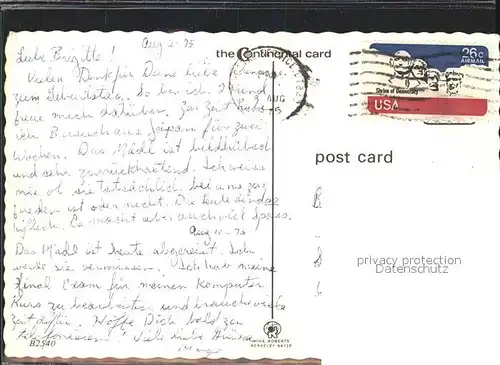 Aug 2-75
the Continental card
26c
AIRMAIL
Shrine of Democracy
USA
AUG
Liebe Brigitte!
Vielen Dank für Deine liebe
zum Geburtstag. So bin ich Freund
freue mich darüber. Zur Zeit habe
Besuch aus Japan für zwei
Wochen. Das Mädl ist bildhübsch
und sehr zurückhaltend. Ich weiss
nie ob sie tatsächlich bei uns zu-
frieden ist oder nicht. Die Leute sind
höflich. Es macht aber auch viel Spass.
Aug 10-75
Das Mädl ist heute abgereist. Ich
werde sie vermissen. Ich habe meine
final Exam für meinen Komputer
Kurs zu bearbeiten und brauche viele
Zeit dafür. Hoffe Dich bald zu
telefonieren! Viele liebe Grüsse
post card
privacy protection
Datenschutz
B2540
MIKE ROBERTS
BERKELEY 94710